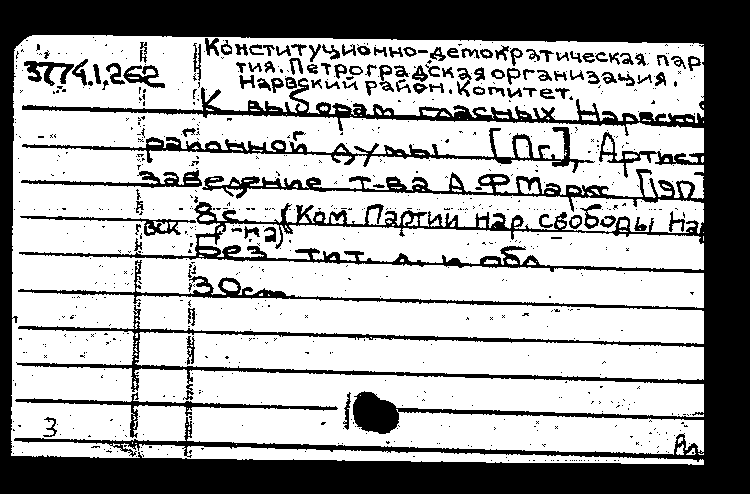 Конституционно-демократическая пар-
3774.1.262 тия. Петроградская организация.
Нарвский район. Комитет.
К выборам гласных Нарвской
районной думы. [Пг.], Артист.
заведение т-ва А.Ф. Маркс, [1917]
8с. (Ком. Партии нар. свободы Нар
вск. р-на)
Без тит. л. и обл.
30cm.
3